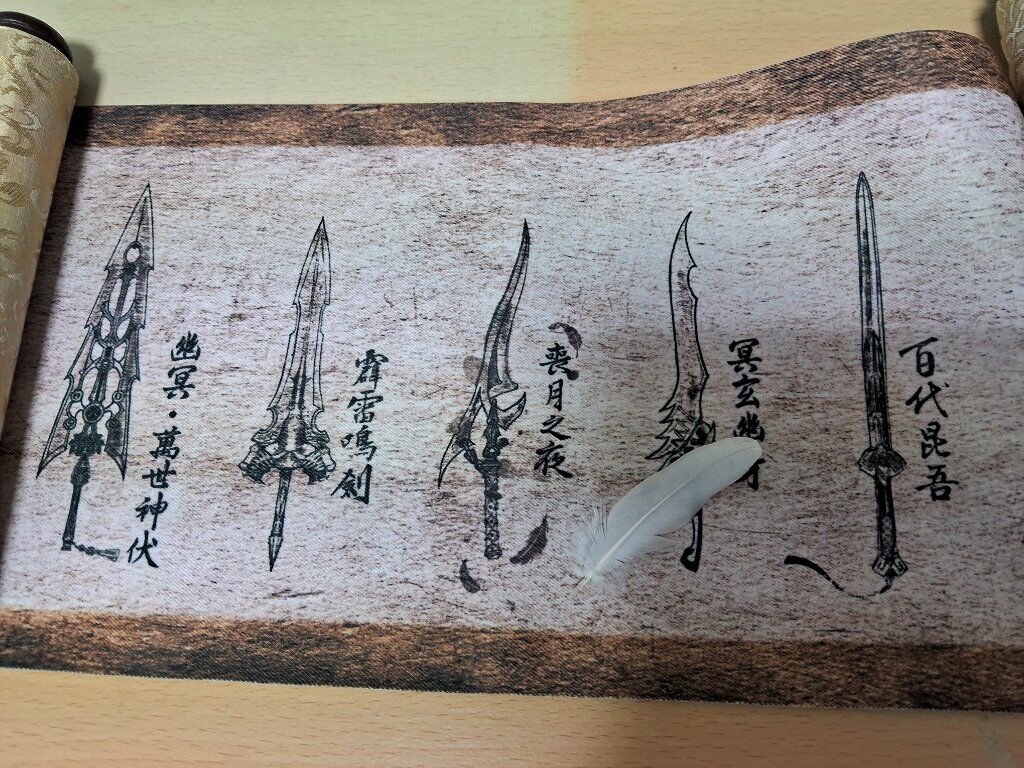 百代昆吾
冥玄幽
喪月之夜
霹雷鳴創
幽冥・萬世神伏